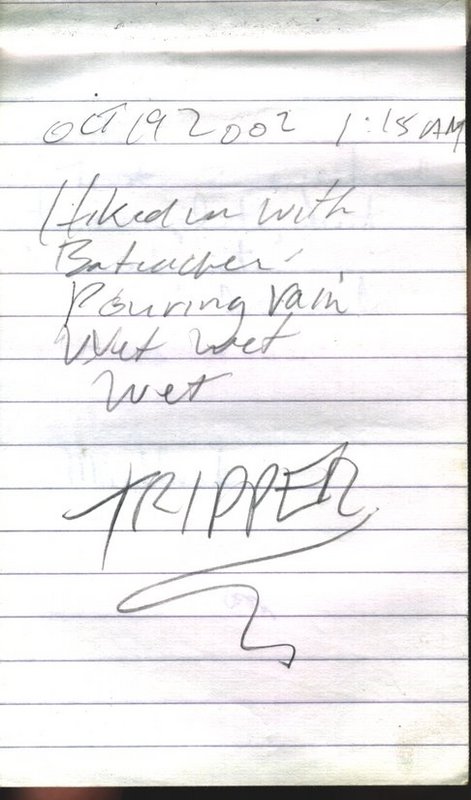 OCT 19 2002 1:15 AM
Hiked in with
Pouring rain
Wet wet
Wet
TRIPPER